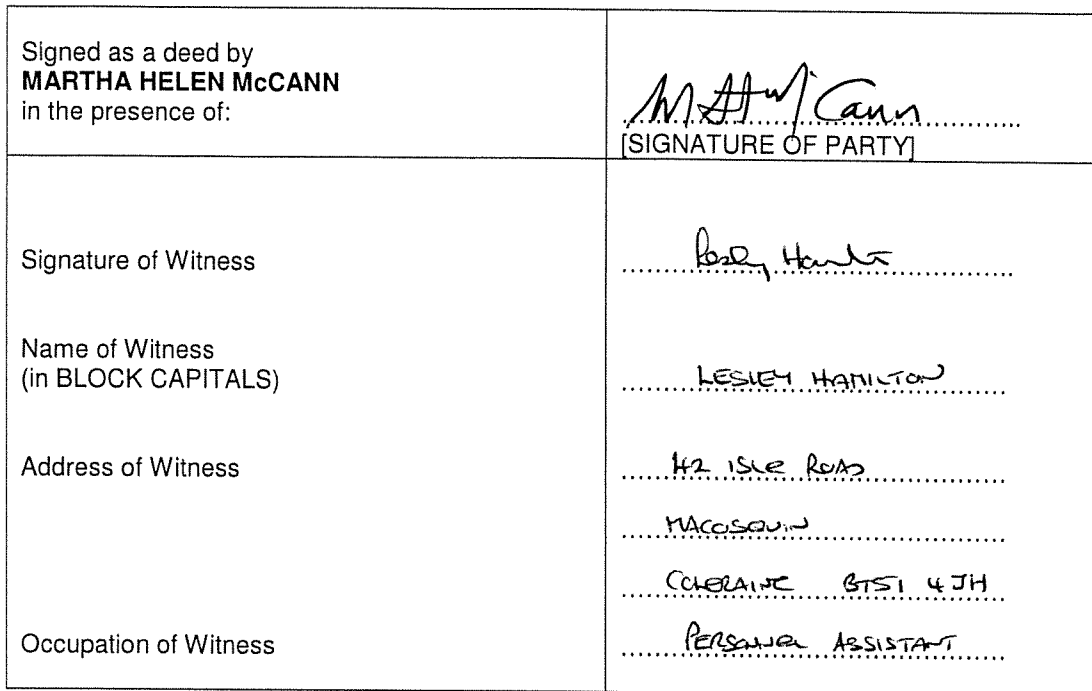 Signed as a deed by
MARTHA HELEN McCANN
in the presence of:
M H McCann
[SIGNATURE OF PARTY]
Signature of Witness
Lesley Hamilton
Name of Witness
(in BLOCK CAPITALS)
LESLEY HAMILTON
Address of Witness
42 ISLE ROAD
MACOSQUIN
COLERAINE BT51 4JH
Occupation of Witness
PERSONNEL ASSISTANT